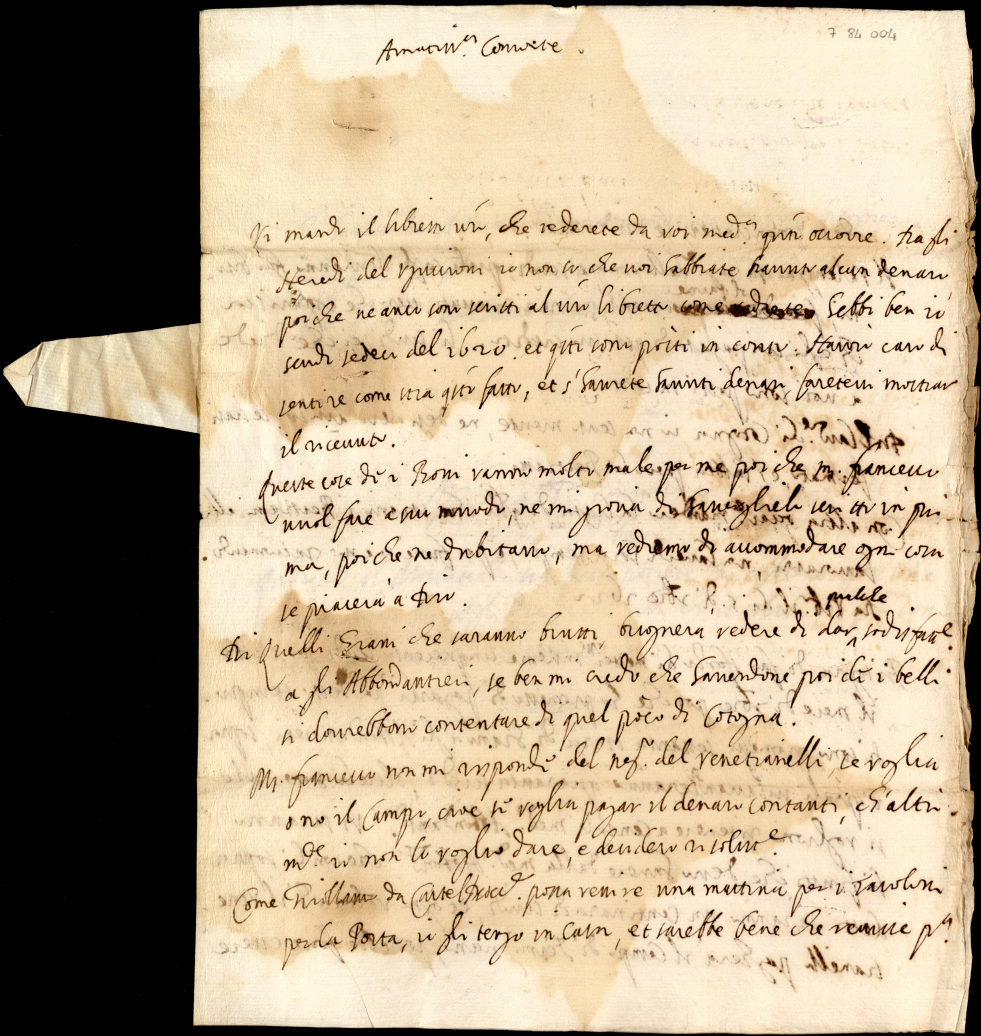 7 84 004
Amatiss.mo Consorte.
Vi mando il libretto vr̃o, che vederete da voi med.mo q̃to occorre. tra gli
Heredi del io non so che voi habbiate havuto alcun denaro
poiche ne anco sono scritti al vr̃o libretto come vedrete hebbi ben io
scudi sedeci del 1620. et q̃sti sono posti in conto. Havrò caro di
sentire come stia q̃sto fatto, et s'havrete havuti denari, faretevi mostrar
il ricevuto.
Queste cose de i Roni vanno molto male per me poi che m. francesco
vuol fare a suo modo, ne mi giova di havergliele scritto in pri
ma, poi che ne dubitavo, ma vedremo di accommodare ogni cosa
se piacerà à Dio.
Di quelli Grani che saranno brutti, bisognerà vedere di dar qualche sodisfatt.e
a gli Abbondantieri, se ben mi credo che havendone poi de i belli
si dovrebbono contentare di quel poco di Cotogna.
M. francesco non mi risponde del neg.o del venetianelli, se voglia
o no il Campo, cioè se voglia pagar il denaro contanti, ch'altri
m.te io non lo voglio dare, e desidero risolut.e
Come Girollamo da possa venire una mattina per i tavoloni
per la Porta, io gli tengo in Casa, et sarebbe bene che venisse p.a